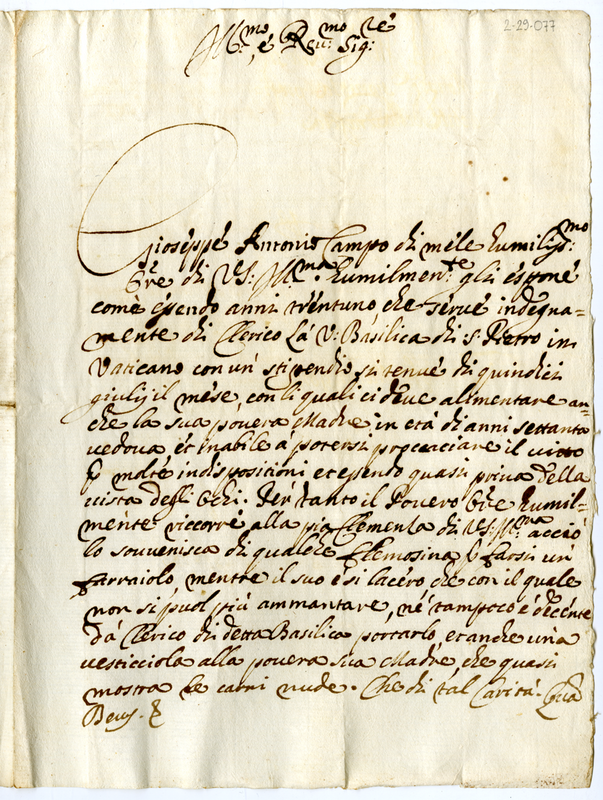 2-29-077
Ill:mo, é Reu:mo Sig:ré
Gioséppé Antonio Campo di mélé humiliss:mo
Oré di V.S: Ill:ma humilmen:te gli éspone
comé essendo anni tréntuno che serué indegna=
mente di Clerico la V: Basilica di S: Pietro in
Vaticano con un' stipendio sì tenué di quindici
giulij il mése, con li quali ci deue alimentare an=
che la sua pouera Madre in età di anni settanta
vedoua, et inabile a potersi procacciare il vitto
p molte indisposizioni et essendo quasi priua della
vista degli Occhi. Per tanto il Pouero Oré humil=
mente riccorré alla pia Clemenza di V.S: Ill:ma acciò
lo souuenisca di qualche Elemosina p farsi un'
farraiolo mentre il suo é sì lacéro che con il quale
non si puol più ammantare, né tampoco é décénte
dà Clerico di detta Basilica portarlo, et anche una
vesticciola alla pouera sua Madre, che quasi
mostra le carni nude. Che di tal Carità.
Deus. &